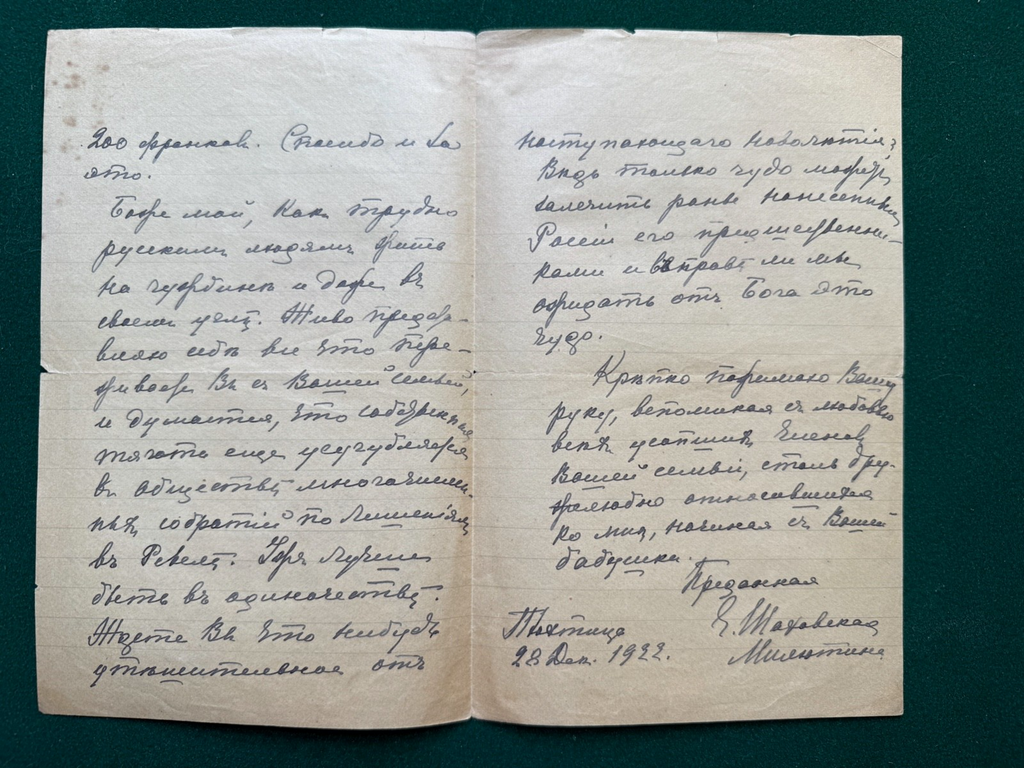 200 франков. Спасибо и за
это.
Боже мой, какъ трудно
русскимъ людямъ жить
на чужбинѣ и даже въ
своемъ углѣ. Живо предста-
вляю себѣ все что пере-
живаете Вы съ Вашей семьей,
и думается, что собственныя
тяготы еще усугубляются
въ обществѣ многочислен-
ныхъ собратій по лишеніямъ
въ Ревелѣ. Ужъ лучше
быть въ одиночествѣ.
Ждете Вы что нибудь
утѣшительное отъ
наступающаго новолѣтія?
Вѣдь только чудо можетъ
залечить раны нанесенныя
Россіи его предшественни-
ками и въ правѣ ли мы
ожидать отъ Бога это
чудо.
Крѣпко пожимаю Вашу
руку, вспоминая съ любовью
всѣхъ усопшихъ членовъ
Вашей семьи, столь дру-
желюбно относившихся
ко мнѣ, начиная съ Вашей
бабушки.
Преданная
Е. Шаховская
Милютина
Пюхтица
28 Дек. 1922.